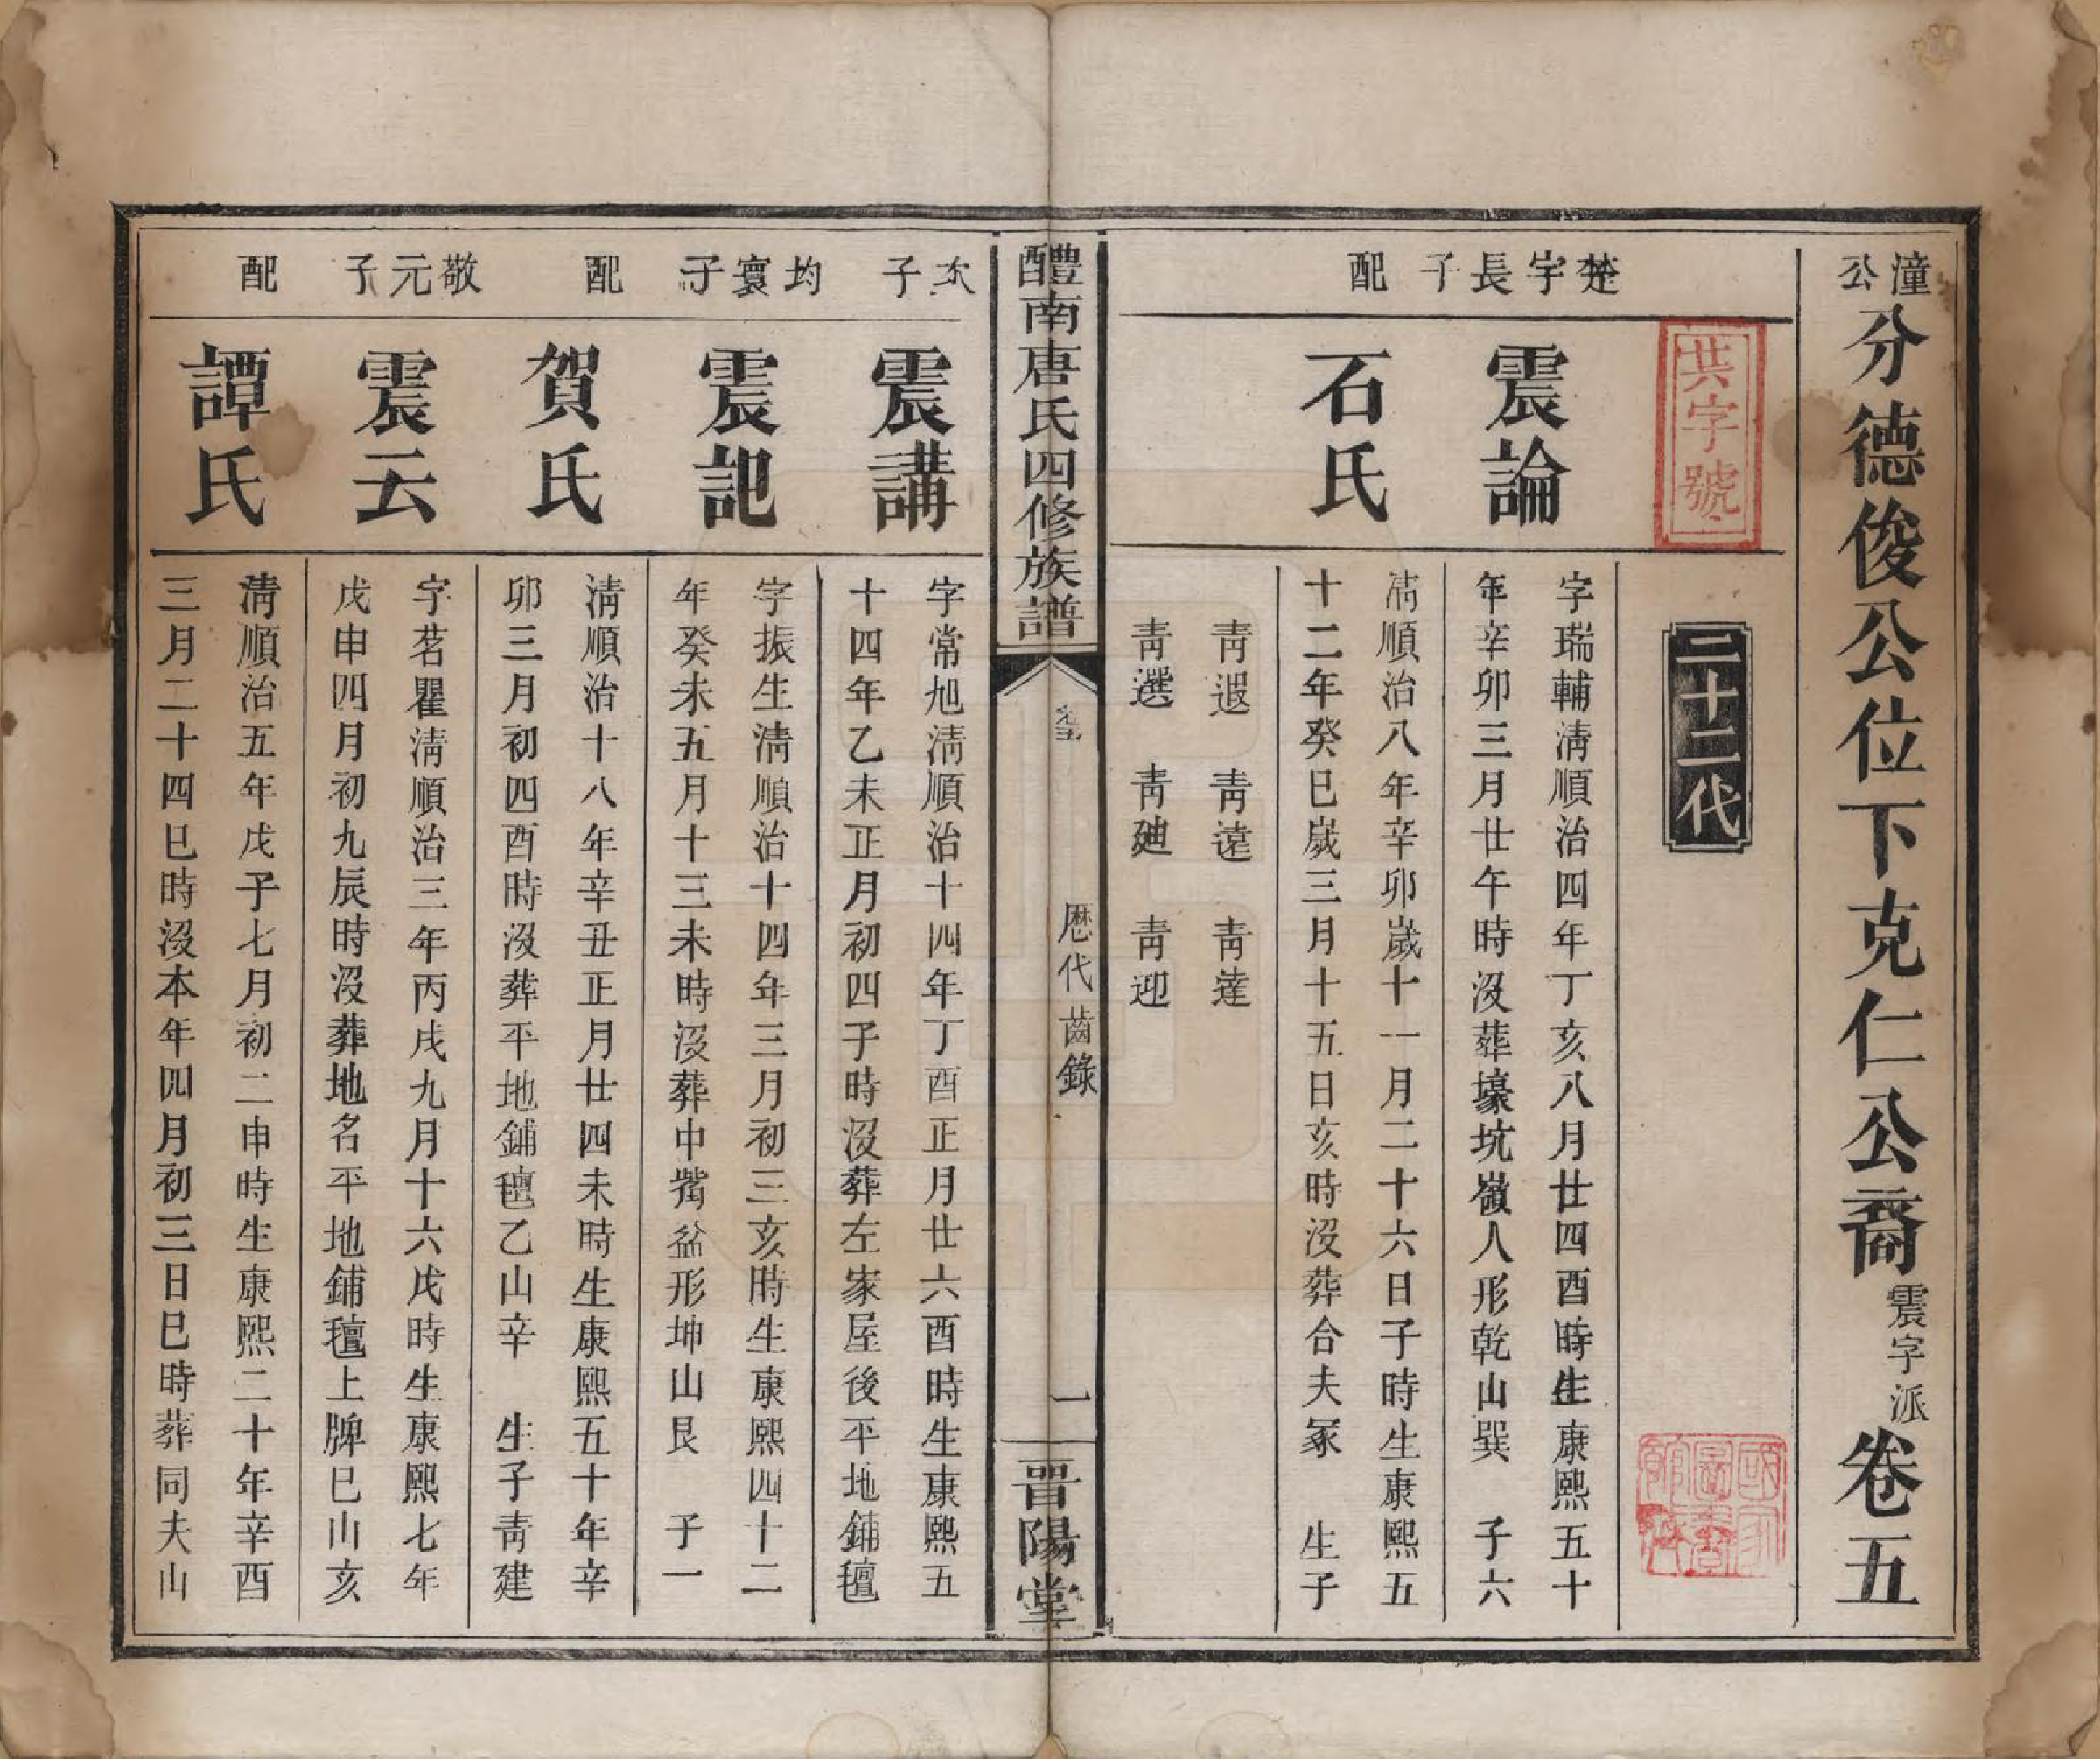 潼公分德俊公位下克仁公裔震字派卷五
共字號
二十二代
楚宇長子
震論
字瑞輔淸順治四年丁亥八月廿四酉時生康熙五十
年辛卯三月廿午時沒葬壕坑嶺人形乾山巽　子六
配
石氏
淸順治八年辛卯歲十一月二十六日子時生康熙五
十二年癸巳歲三月十五日亥時沒葬合夫冢　生子
靑遐　靑遠　靑達
靑選　靑廸　靑迎
醴南唐氏四修族譜
卷五
歷代齒錄
一
晉陽堂
次子
震講
字常旭淸順治十四年丁酉正月廿六酉時生康熙五
十四年乙未正月初四子時沒葬左家屋後平地鋪氊
均寰子
震記
字振生淸順治十四年三月初三亥時生康熙四十二
年癸未五月十三未時沒葬中觜盆形坤山艮　子一
配
賀氏
淸順治十八年辛丑正月廿四未時生康熙五十年辛
卯三月初四酉時沒葬平地鋪氊乙山辛　生子靑建
敬元子
震云
字茗瞿淸順治三年丙戌九月十六戌時生康熙七年
戊申四月初九辰時沒葬地名平地鋪氊上牌巳山亥
配
譚氏
淸順治五年戊子七月初二申時生康熙二十年辛酉
三月二十四巳時沒本年四月初三日巳時葬同夫山